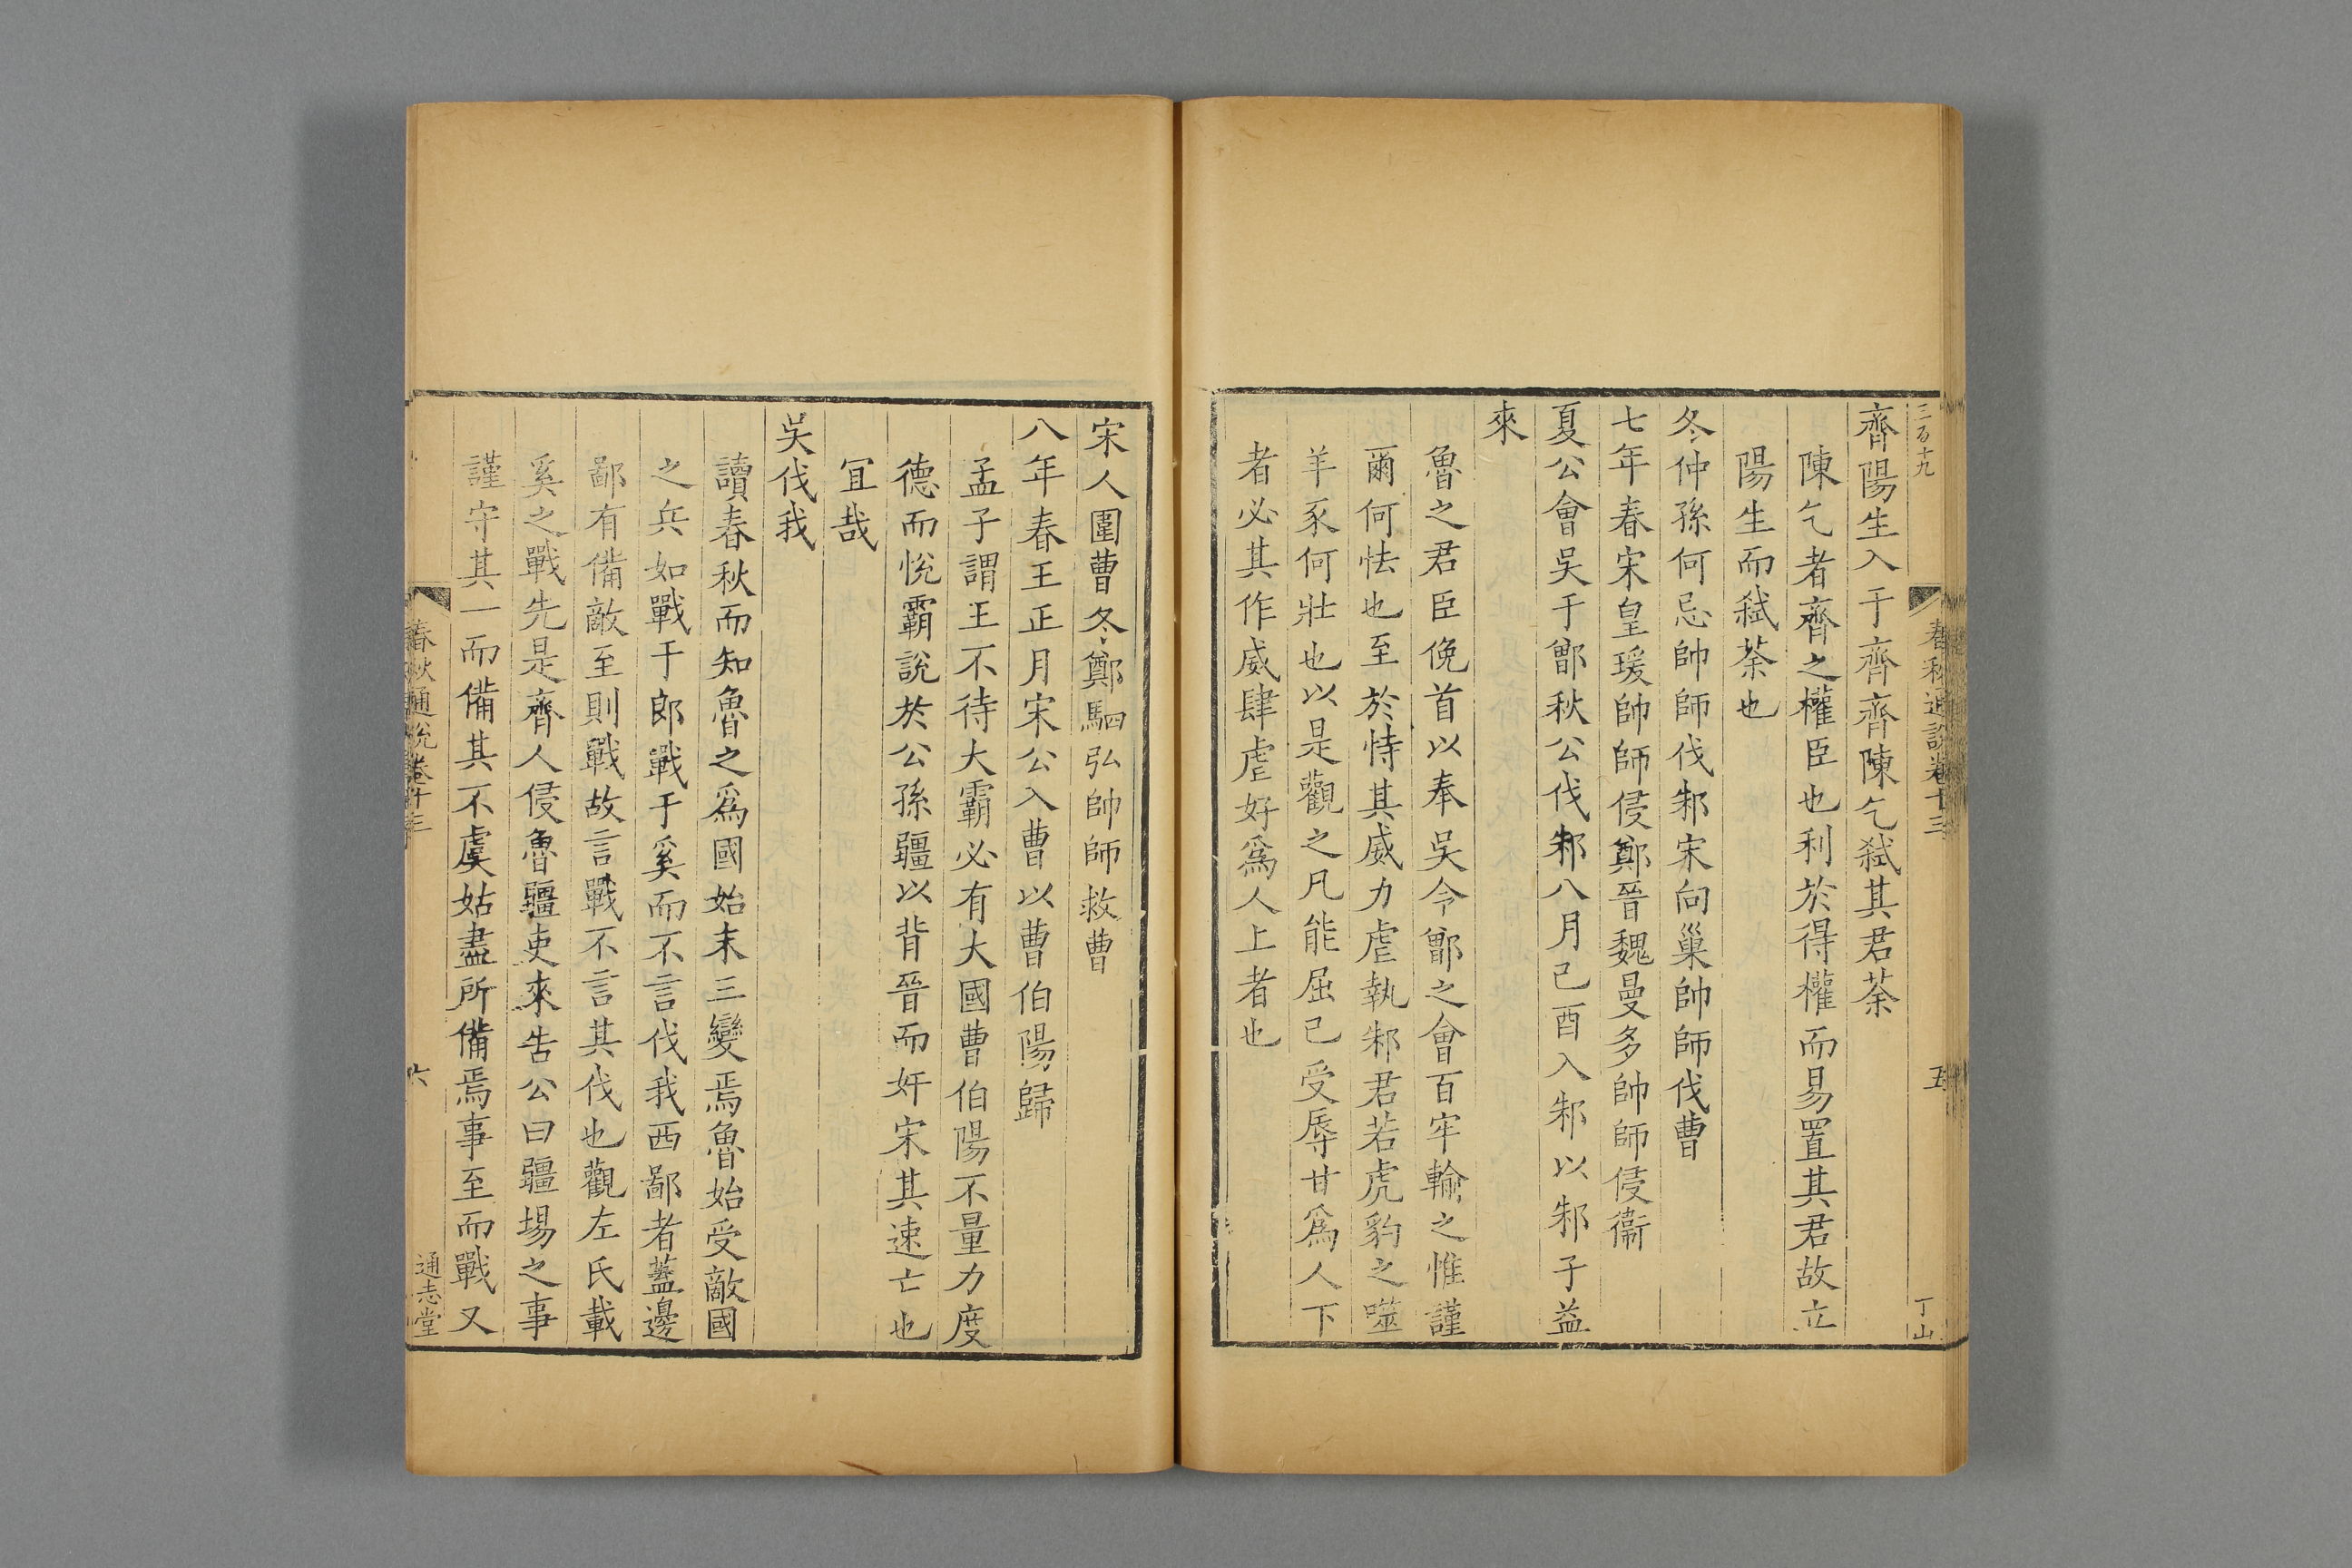 三百十九
春秋通說卷十三
五
丁山
齊陽生入于齊齊陳乞弑其君荼
陳乞者齊之權臣也利於得權而易置其君故立
陽生而弑荼也
冬仲孫何忌帥師伐邾宋向巢帥師伐曹
七年春宋皇瑗帥師侵鄭晉魏曼多帥師侵衞
夏公會吳于鄫秋公伐邾八月己酉入邾以邾子益
來
魯之君臣俛首以奉吳今鄫之會百牢輸之惟謹
爾何怯也至於恃其威力虐執邾君若虎豹之噬
羊豕何壯也以是觀之凡能屈己受辱甘爲人下
者必其作威肆虐好爲人上者也
宋人圍曹冬鄭駟弘帥師救曹
八年春王正月宋公入曹以曹伯陽歸
孟子謂王不待大霸必有大國曹伯陽不量力度
德而悅霸說於公孫疆以背晉而奸宋其速亡也
宜哉
吳伐我
讀春秋而知魯之爲國始末三變焉魯始受敵國
之兵如戰于郎戰于奚而不言伐我西鄙者蓋邊
鄙有備敵至則戰故言戰不言其伐也觀左氏載
奚之戰先是齊人侵魯疆吏來告公曰疆埸之事
謹守其一而備其不虞姑盡所備焉事至而戰又
春秋通說卷十三
六
通志堂